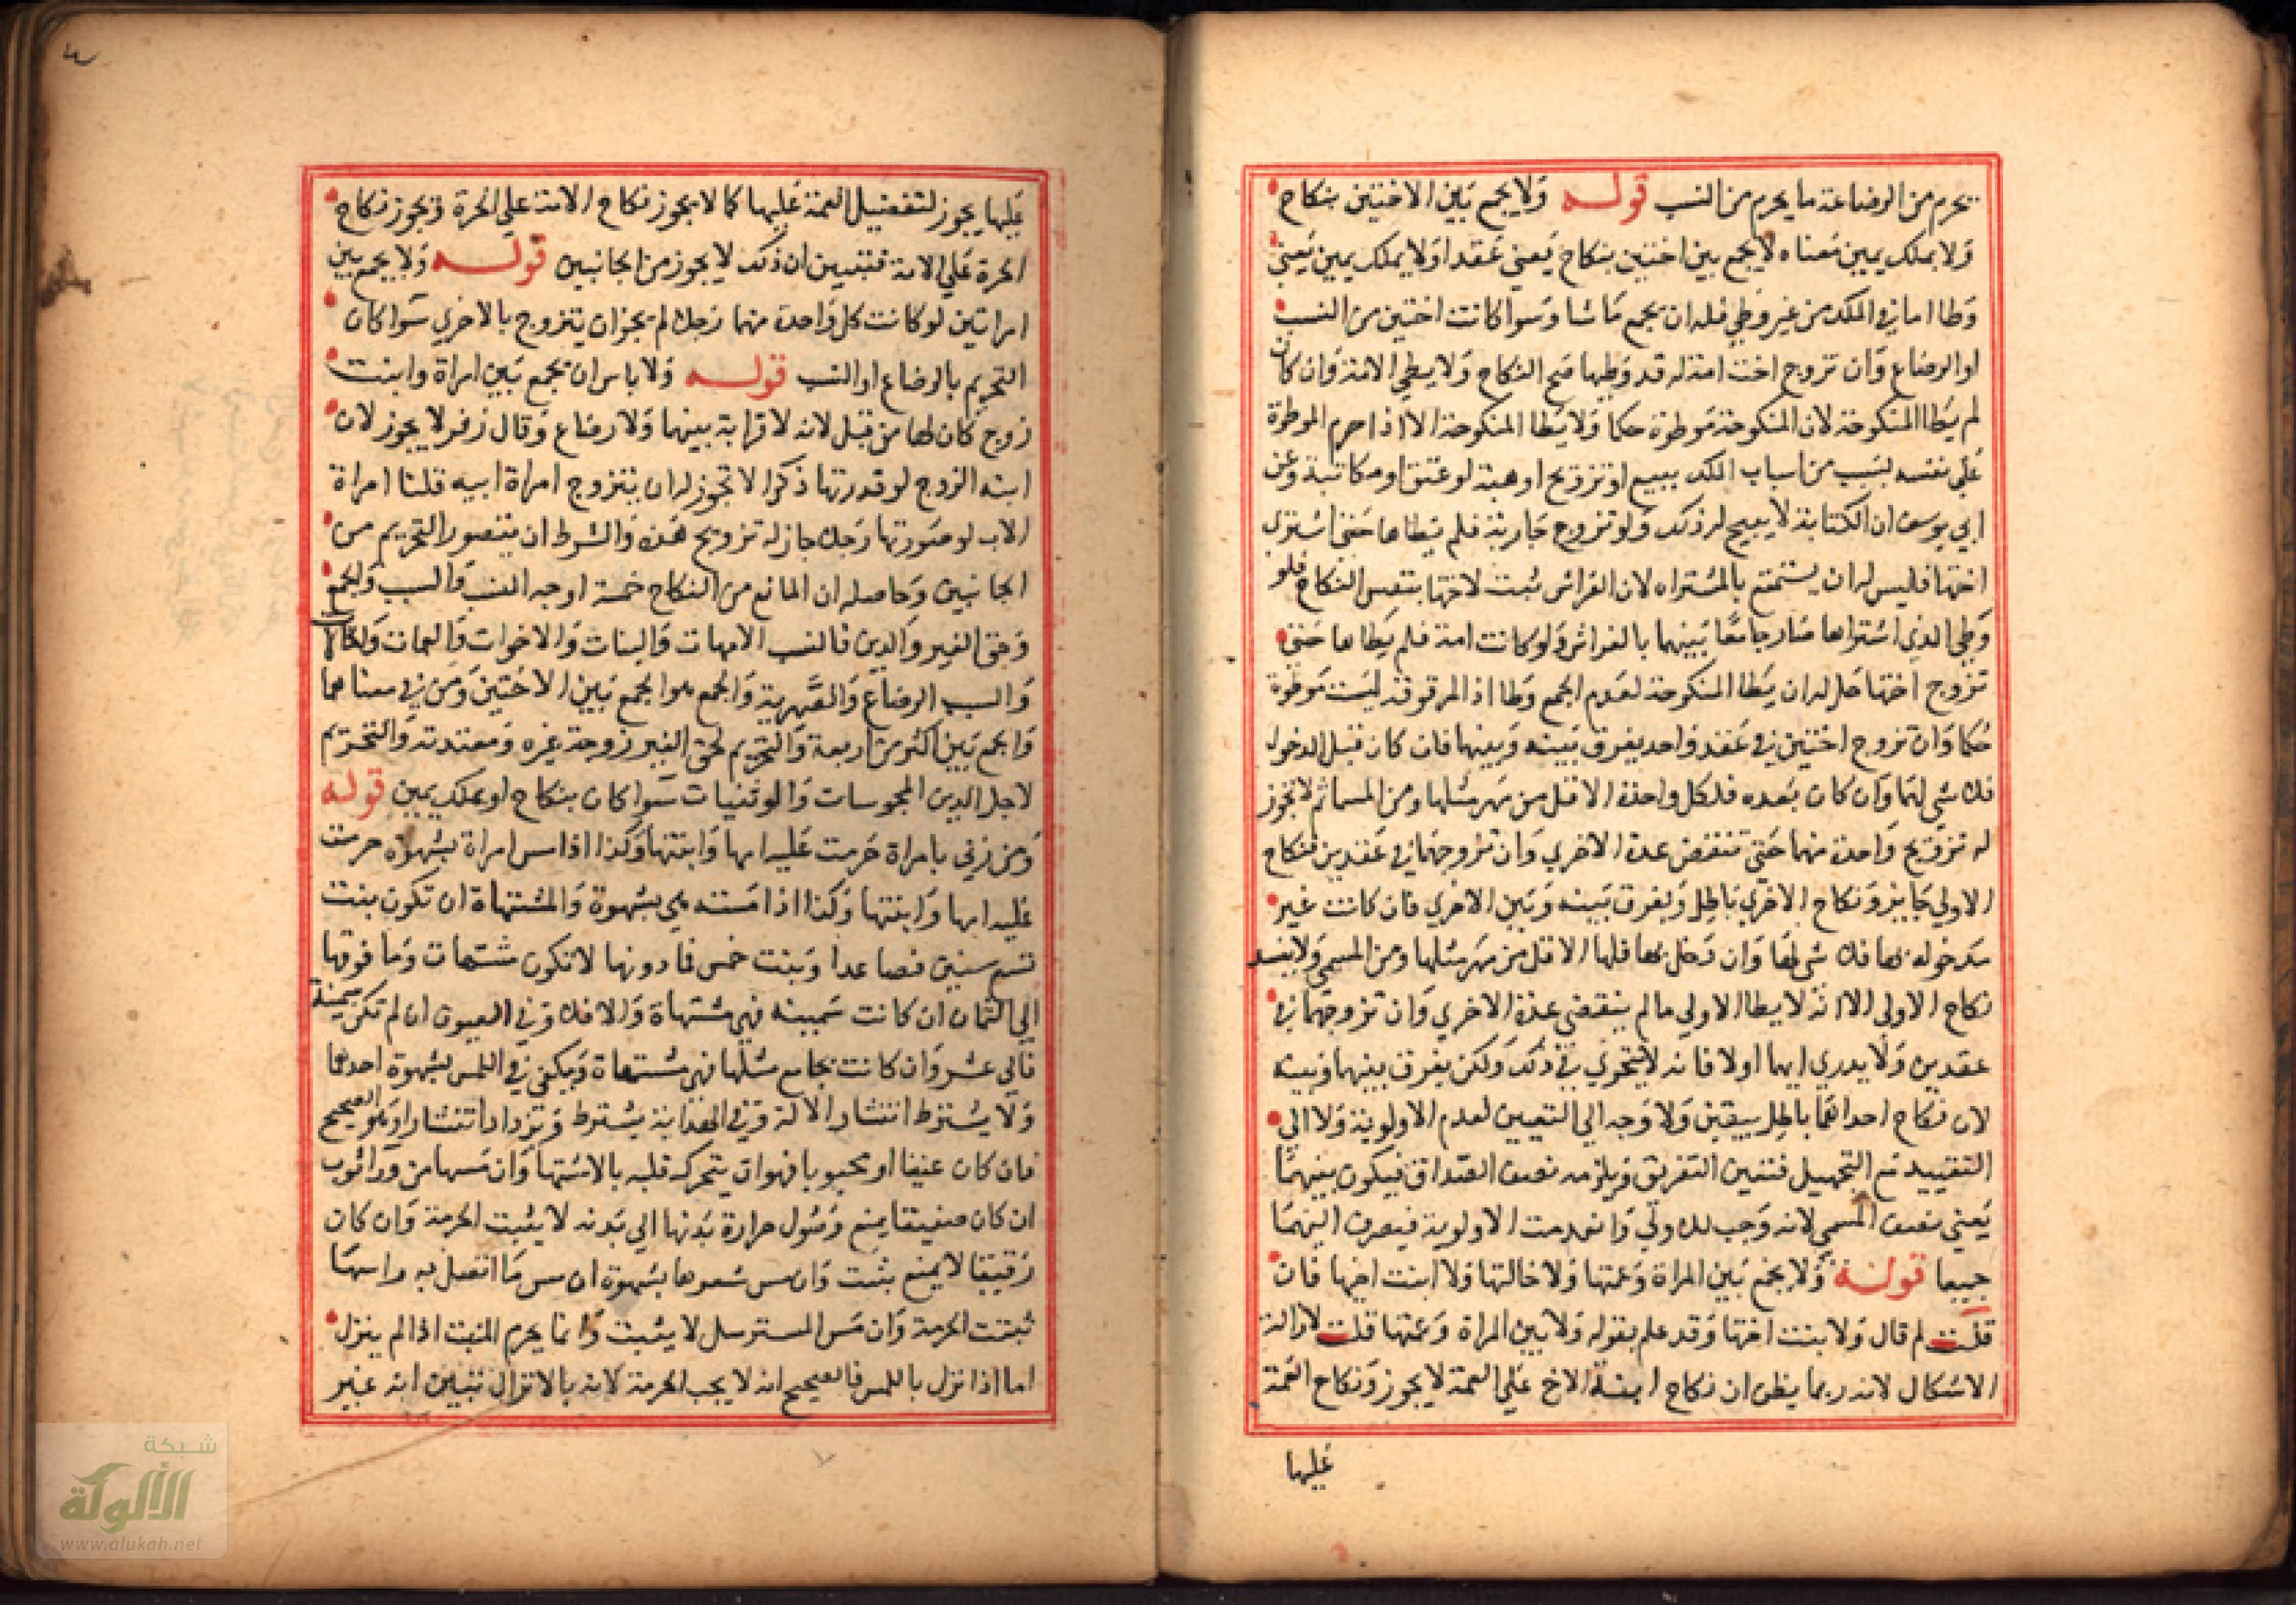 يحرم من الرضاعة ما يحرم من النسب قوله ولا يجمع بين الاختين بنكاح
ولا بملك يمين معناه لا يجمع بين اختين بنكاح يعني عقدا ولا بملك يمين يعني
وطا اما في الملك من غير وطي فله ان يجمع ما شا وسوا كانت اختين من النسب
او الرضاع وان تزوج اخت امة له قد وطيها صح النكاح ولا يطي الامة وان كان
لم يطا المنكوحة لان المنكوحة موطوة حكما ولا يطا المنكوحة الا اذا حرم الموطوة
علي نفسه لسبب من اسباب الملك ببيع او تزويج او هبة او عتق او مكاتبة وعن
ابي يوسف ان الكتابة لا يبيح له ذلك ولو تزوج جارية فلم يطاها حتي اشتري
اختها فليس له ان يستمتع بالمشتراه لان الفراش ثبت لاختها بنفس النكاح فلو
وطي الذي اشتراها صار جامعا بينهما بالفراش ولو كانت امة فلم يطاها حتي
تزوج اختها حل له ان يطا المنكوحة لعدم الجمع وطا اذ المرقوقة ليست موطوة
حكما وان تزوج اختين في عقد واحد يفرق بينه وبينهما فان كان قبل الدخول
فلا شي لهما وان كان بعده فلكل واحدة الاقل من مهر مثلها ومن المسما ثم لا يجوز
له تزويج واحدة منهما حتي تنقضي عدة الاخري وان تزوجهما في عقدين فنكاح
الاولي جايز ونكاح الاخري باطل ويفرق بينه وبين الاخري فان كانت غير
مدخوله بها فلا شي لها وان دخل بها فلها الاقل من مهر مثلها ومن المسمي ولا يفسد
نكاح الاولي الا انه لا يطا الاولي ما لم ينقضي عدة الاخري وان تزوجهما في
عقدين ولا يدري ايهما اولا فانه لا يتحري في ذلك ولكن يفرق بينهما وبينه
لان نكاح احداهما باطل بيقين ولا وجه الي التعيين لعدم الاولوية ولا الي
التقييد مع التجهيل فتعين التفريق ويلزمه نصف الصداق فيكون بينهما
يعني نصف المسمي لانه وجب للاولي وانعدمت الاولوية فيصرف اليهما
جميعا قوله ولا يجمع بين المراة وعمتها ولا خالتها ولا ابنت اخيها فان
قلت لم قال ولا بنت اختها وقد علم بقوله ولا بين المراة وعمتها قلت لازالة
الاشكال لانه ربما يظن ان نكاح ابنة الاخ علي العمة لا يجوز ونكاح العمة
عليها
عليها يجوز لتفضيل العمة عليها كما لا يجوز نكاح الامة علي الحرة ويجوز نكاح
الحرة علي الامة فتبين ان ذلك لا يجوز من الجانبين قوله ولا يجمع بين
امراتين لو كانت كل واحدة منهما رجلا لم يجز ان يتزوج بالاخري سوا كان
التحريم بالرضاع او النسب قوله ولا باس ان يجمع بين امراة وابنت
زوج كان لها من قبل لانه لا قرابة بينهما ولا رضاع وقال زفر لا يجوز لان
ابنه الزوج لو قدرتها ذكرا لا تجوز له ان يتزوج امراة ابيه قلنا امراة
الاب لو صورتها رجلا جاز له تزويج هذه والشرط ان يتصور التحريم من
الجانبين وحاصله ان المانع من النكاح خمسة اوجه النسب والسبب والجمع
وحق الغير والدين فالنسب الامهات والبنات والاخوات والعمات والخالات
والسبب الرضاع والصهرية والجمع هو الجمع بين الاختين ومن في معناهما
والجمع بين اكثر من اربعة والتحريم لحق الغير زوجة غيره ومعتدته والتحريم
لاجل الدين المجوسات والوثنيات سوا كان بنكاح او بملك يمين قوله
ومن زني بامراة حرمت عليه امها وابنتها وكذا اذا مس امراة بشهوة حرمت
عليه امها وابنتها وكذا اذا مسته هي بشهوة والمشتهاة ان تكون بنت
تسع سنين فصاعدا وبنت خمس فما دونها لا تكون مشتهات وما فوقها
الي الثمان ان كانت سمينه فهي مشتهاة والا فلا وفي العيون ان لم تكن سمينة
فالي عشر وان كانت يجامع مثلها فهي مشتهاة ويكفي في اللمس بشهوة احدهما
ولا يشترط انتشار الالة وفي الهداية يشترط وتزداد انتشارا وهو الصحيح
فان كان عنينا او مجبوبا فهو ان يتحرك قلبه بالاشتها وان مسها من ورا ثوب
ان كان صفيقا يمنع وصول حرارة بدنها الي بدنه لا يثبت الحرمة وان كان
رقيقا لا يمنع يثبت وان مس شعرها بشهوة ان مس ما اتصل به راسها
ثبتت الحرمة وان مس المسترسل لا يثبت وانما يحرم المس اذا لم ينزل
اما اذا نزل باللمس فالصحيح انه لا يجب الحرمة لانه بالانزال تبين انه غير
شبكة
الألوكة
www.alukah.net